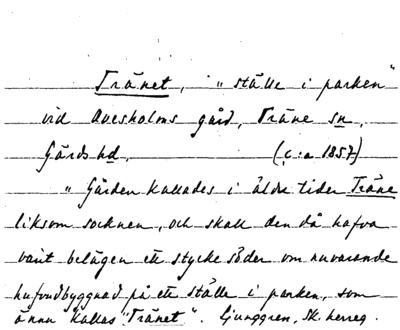 Tränet, "ställe i parken"
vid Ovesholms gård, Träne sn,
Gärds hd. (c:a 1857)
"Gården kallades i äldre tider Träne
liksom socknen, och skall den då hafva
varit belägen ett stycke söder om nuvarande
hufvudbyggnad på ett ställe i parken, som
ännu kallas "Tränet". Ljunggren, Sk. herreg.